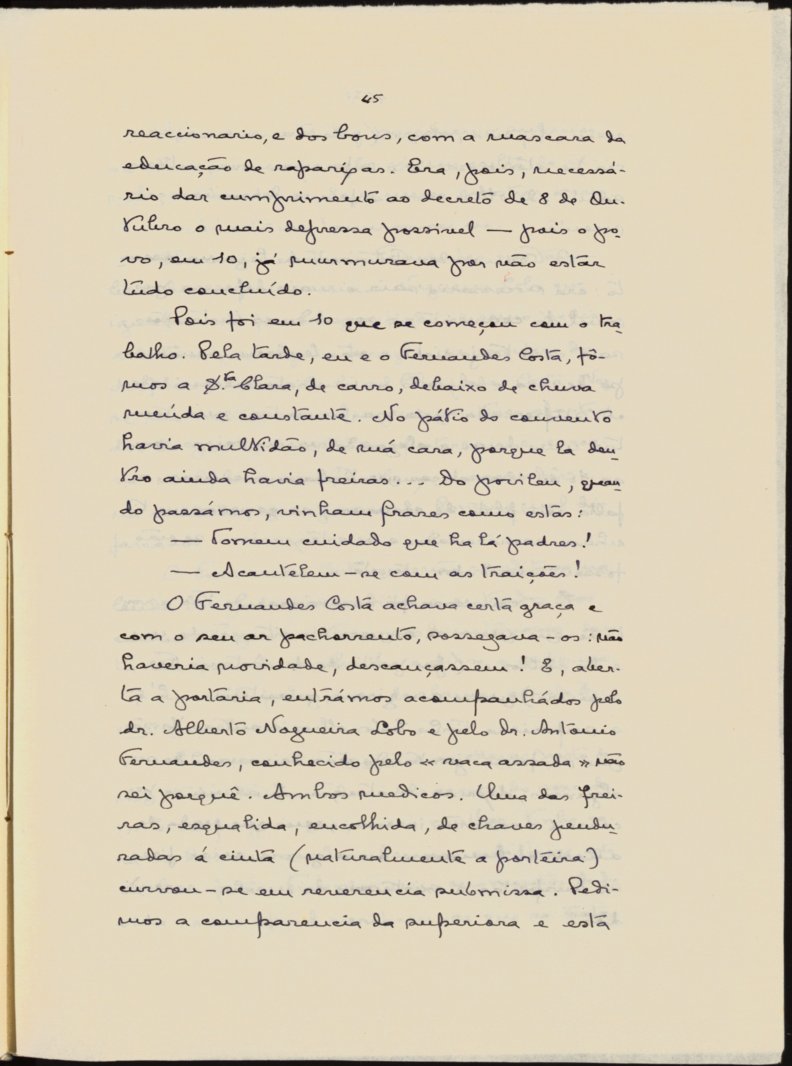 45
reaccionario, e dos bons, com a mascara da
educação de raparigas. Era, pois, necessá-
rio dar cumprimento ao decreto de 8 de Ou-
tubro o mais depressa possivel — pois o po-
vo, em 10, já murmurava por não estar
tudo concluído.
Pois foi em 10 que se começou com o tra-
balho. Pela tarde, eu e o Fernandes Costa, fô-
mos a S.ta Clara, de carro, debaixo de chuva
meúda e constante. No pátio do convento
havia multidão, de má cara, porque la den-
tro ainda havia freiras... Do povileu, quan-
do passámos, vinham frases como estas:
— Tomem cuidado que ha lá padres!
— Acautelem-se com as traições!
O Fernandes Costa achava certa graça e
com o seu ar pachorrento, sossegava-os: não
haveria novidade, descançassem! E, aber-
ta a portaria, entrámos acompanhádos pelo
dr. Alberto Nogueira Lobo e pelo dr. Antonio
Fernandes, conhecido pelo « vaca assada » não
sei porquê. Ambos medicos. Uma das frei-
ras, esqualida, encolhida, de chaves pendu-
radas á cinta (naturalmente a porteira)
curvou-se em reverencia submissa. Pedi-
mos a comparencia da superiora e esta